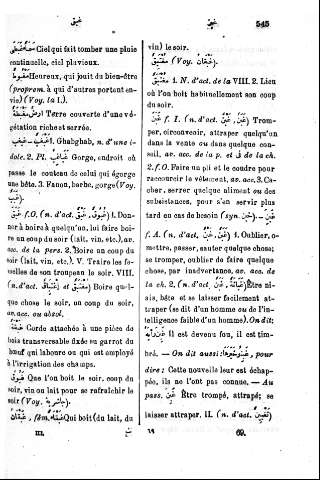 غبق غبن 545
Ciel qui fait tomber une pluie
continuelle, ciel pluvieux.
Heureux, qui jouit du bien-être
(proprem. à qui d'autres portent en-
vie) (Voy. la I.).
Terre couverte d'une vé-
gétation riche et serrée.
1. Ghabghab, n. d'une i-
dole. 2. Pl. غَبَاغِب Gorge, endroit où
passe le couteau de celui qui égorge
une bête. 3. Fanon, barbe, gorge (Voy.
غَبَب).
غَبَق f. O. (n. d'act. غَبْق, غَبُوق) 1. Don-
ner à boire à quelqu'un, lui faire boi-
re un coup du soir (lait, vin, etc.), av.
acc. de la pers. 2. Boire un coup du
soir (lait, vin, etc.). V. Traire les fe-
melles de son troupeau le soir. VIII.
(n. d'act. اغتباق et مغتبق) Boire quel-
que chose le soir, un coup du soir,
av. acc. ou absol.
Corde attachée à une pièce de
bois transversale fixée su garrot du
bœuf qui laboure ou qui est employé
à l'irrigation des champs.
غَبُوق Que l'on boit le soir, coup du
soir, vin ou lait pour se rafraîchir le
soir (Voy. جاشرية).
غَبْقَان, fém. غَبْقَى Qui boit (du lait, du
III.
vin) le soir.
(Voy. غَبْقَان).
مغتبق 1. N. d'act. de la VIII. 2. Lieu
où l'on boit habituellement son coup
du soir.
غبن f. I. (n. d'act. غَبْن, غَبَن) Trom-
per, circonvenir, attraper quelqu'un
dans la vente ou dans quelque con-
seil, av. acc. de la p. et في de la ch.
2. f. O. Faire un pli et le coudre pour
raccourcir le vêtement, av. acc. 3. Ca-
cher, serrer quelque aliment ou des
subsistances, pour s'en servir plus
tard en cas de besoin (syn. خبن). — غبن
f. A. (n. d'act. غَبْن, غَبَن) 1. Oublier, o-
mettre, passer, sauter quelque chose;
se tromper, oublier de faire quelque
chose, par inadvertance, av. acc. de
la ch. 2. (n. d'act. غَبَانة, غَبَن) Être ni-
ais, bête et se laisser facilement at-
traper (se dit d'un homme ou de l'in-
telligence faible d'un homme). On dit:
غبن رأيه Il est devenu fou, il est tim-
bré. — On dit aussi: , pour
dire: Cette nouvelle leur est échap-
pée, ils ne l'ont pas connue. — Au
pass. غُبِن Être trompé, attrapé; se
laisser attraper. II. (n. d'act. تغبين)
69.